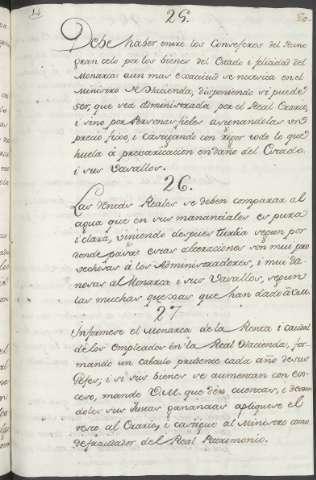 25.
Debe haber entre los Consejeros del Reino
gran celo por los bienes del Estado i felicidad del
Monarca: aun mas exactitud se necesita en el
Ministro de Hacienda, disponiendo si puede
ser, que sea administrada por el Real Erario,
i sino por Personas fieles arrendandola en
precio fixo, i castigando con rigor todo lo que
huela á prevaricacion en daño del Estado
i sus Vasallos.
26.
Las Rentas Reales se deben comparar al
agua que en sus manantiales es pura
i clara, viniendo despues turbia segun por
donde pasa: estas alteraciones son mui pro
vechosas á los Administradores, i mui da
ñosas al Monarca i sus Vasallos, segun
las muchas quexas que han dado á V.M.
27.
Informese el Monarca de la Renta i caudal
de los empleados en la Real Hacienda, for
mando un calculo prudente cada año de sus
Gefes; i si sus bienes se aumentan con ex
ceso, mande V.M. que den cuentas, i
dolos sus justas ganancias aplique el
resto al Erario, i castigue al Ministro como
defraudador del Real Patrimonio.